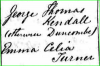 George Thomas
Kendall
(otherwise Duncombe)
Emma Celia
Turner